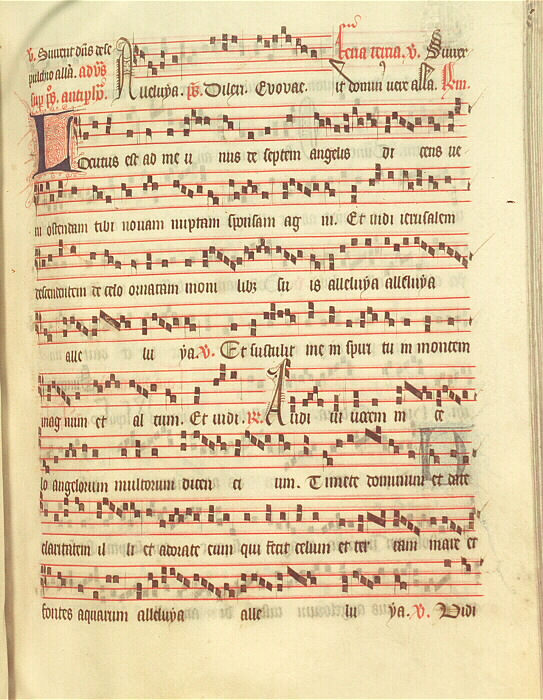 V. Surrexit dns de se
pulchro alla. adv̄s
sup ps. antiphō. Alleluya. ps. Dilexi. Evovae.
feria tercia. V. Surrex
it dominus vere alla. Rm.
Locutus est ad me u nus de septem angelis di cens ve
ni ostendam tibi novam nuptam sponsam ag ni. Et vidi ierusalem
descendentem de celo ornatam moni libz su is alleluya alleluya
alle lu ya. V. Et sustulit me in spiri tu in montem
magnum et al tum. Et vidi. R. Audi vi vocem in ce
lo angelorum multorum dicen ci um. Timete dominum et date
claritatem il li et adorate eum qui fecit celum et ter ram mare et
fontes aquarum alleluya alle lu ya. V. Vidi